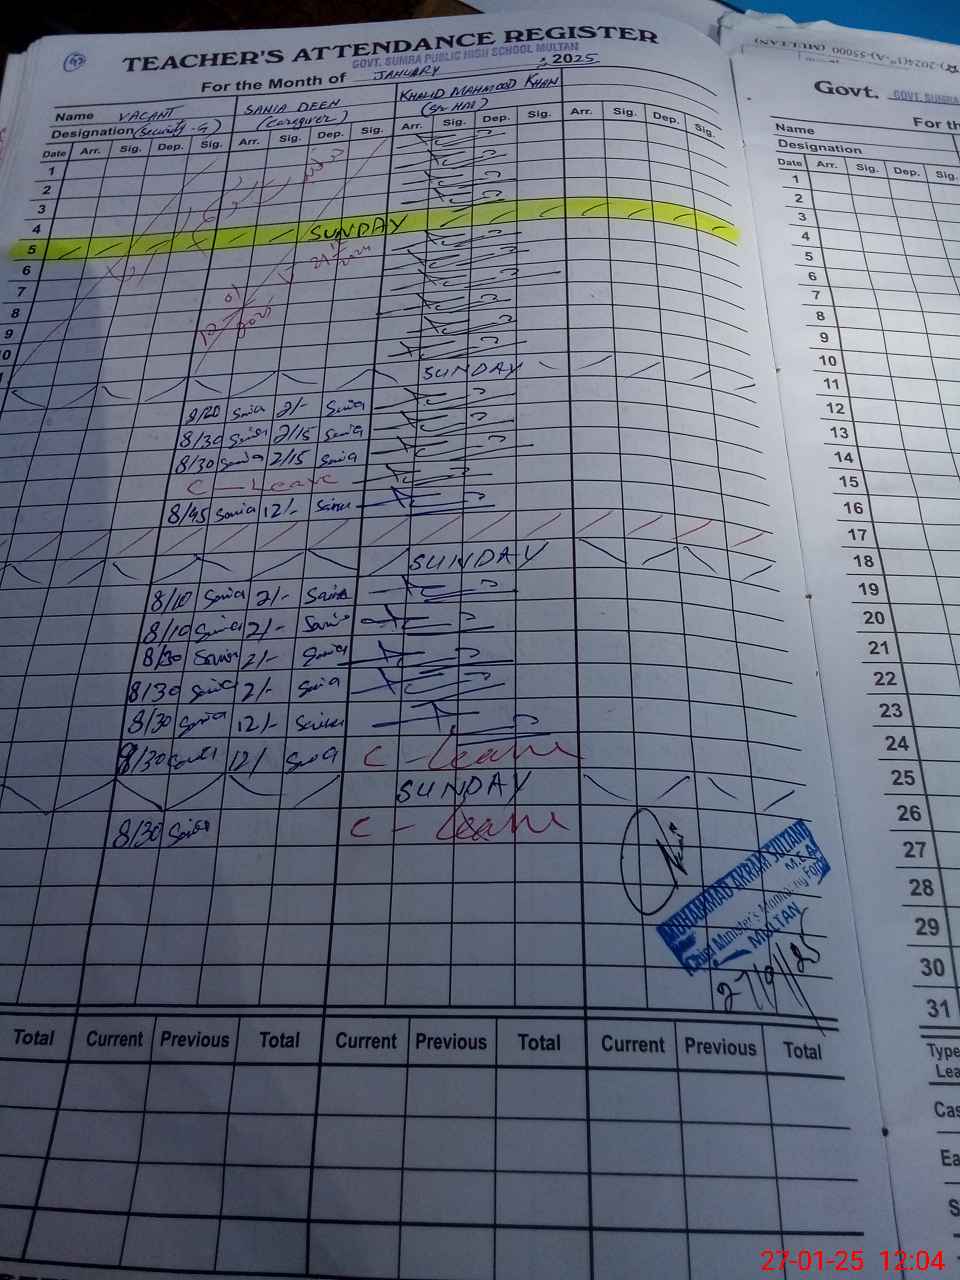 TEACHER'S ATTENDANCE REGISTER
GOVT. SUMRA PUBLIC HIGH SCHOOL MULTAN
For the Month of JANUARY, 2025
Name VACANT SANIA DEEN KHALID MAHMOOD KHAN
Designation (Security-G) (Caregiver)
Date Arr. Sig. Dep. Sig. Arr. Sig. Dep. Sig. Arr. Sig. Dep. Sig. Arr. Sig. Dep. Sig.
1
2
3
4
5 SUNDAY
6
7
8
9
10
SUNDAY
8/20 Sania 2/- Sania
8/30 Sania 2/15 Sania
8/30 Sania 2/15 Sania
C - Leave
8/45 Sania 12/- Sania
SUNDAY
8/10 Sania 2/- Sania
8/10 Sania 2/- Sania
8/30 Sania 2/- Sania
8/30 Sania 2/- Sania
8/30 Sania 12/- Sania
8/30 Sania 12/ Sania C - Leave
SUNDAY
8/30 Sania C - Leave
MUHAMMAD AKRAM SULTANI
M.E.A
Chief Minister's Monitoring Force
MULTAN
Total Current Previous Total Current Previous Total Current Previous Total
Govt. GOVT. SUMRA
For th
Name
Designation
Date Arr. Sig. Dep. Sig.
1
2
3
4
5
6
7
8
9
10
11
12
13
14
15
16
17
18
19
20
21
22
23
24
25
26
27
28
29
30
31
Type
Lea
Cas
Ea
S
27-01-25 12:04